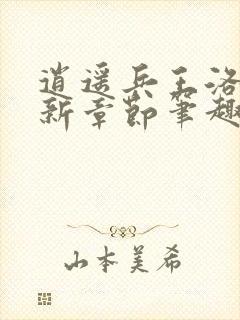 逍遥兵王洛
新章节笔趣
山本美希